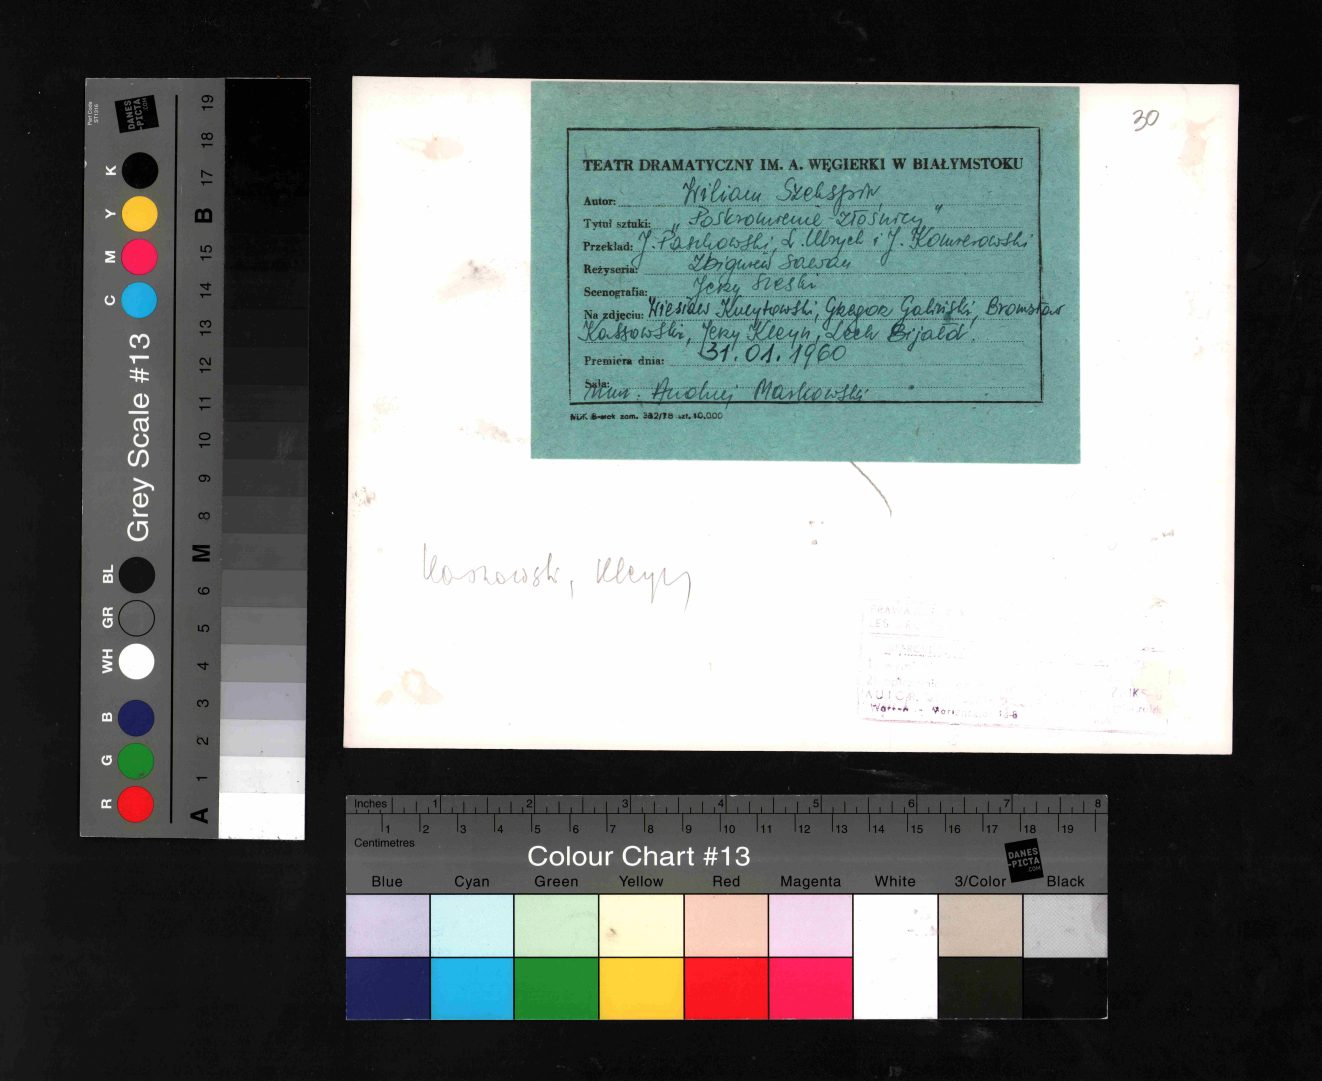 30
TEATR DRAMATYCZNY IM. A. WĘGIERKI W BIAŁYMSTOKU
Autor: Wiliam Szekspir
Tytuł sztuki: „Poskromienie Złośnicy"
Przekład: J. Paszkowski, L. Ulrych i J. Komierowski
Reżyseria: Zbigniew Sawan
Scenografia: Jerzy
Na zdjęciu: Wiesław Grzegorz Galiński, Bronisław
Kassowski, Jerzy Kleyn, Lech Bijałd.
Premiera dnia: 31.01.1960
Sala:
muz. Andrzej Markowski
B-stok zam. 342/78 szt. 10.000
Kassowski, Kleyn
Grey Scale #13
DANES
-PICTA
.COM
K Y M C
BL GR WH B G R
19 18 17 B 15 14 13 12 11 10 9 8 M 6 5 4 3 2 1 A
Inches 1 2 3 4 5 6 7 8
1 2 3 4 5 6 7 8 9 10 11 12 13 14 15 16 17 18 19
Centimetres
Colour Chart #13
DANES
-PICTA
.COM
Blue Cyan Green Yellow Red Magenta White 3/Color Black